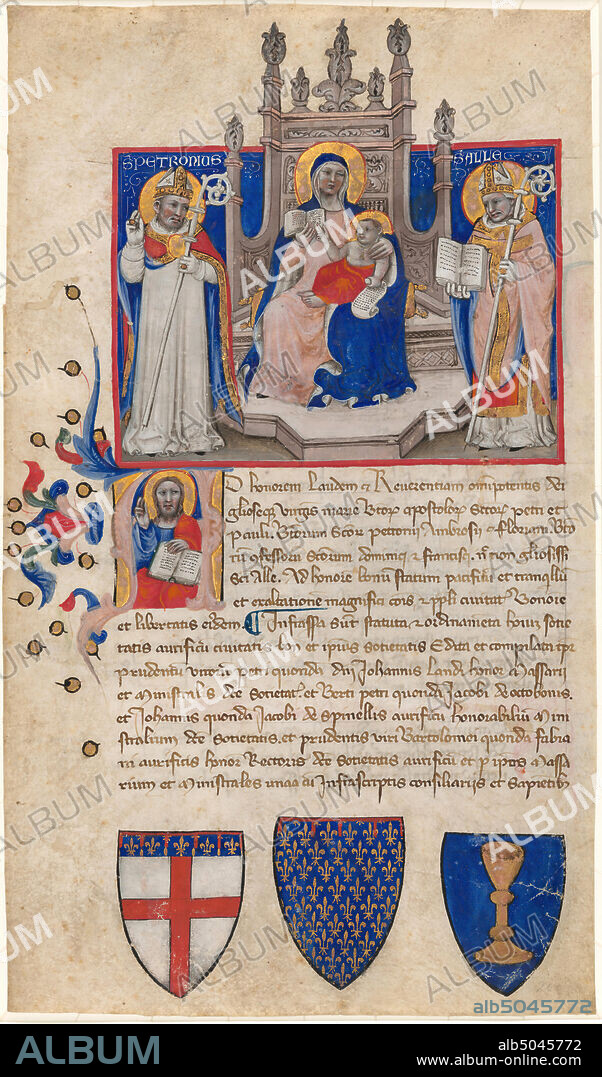 S PETRONIUS
S ALLE
D honorem Laudem et Reverentiam omnipotentis dei
gloseqz virgis marie btorz apostolorz sctorz petri et
pauli. Btorum Sctorz petronii Ambrosii et floriani. Bto
Sci Alle. Ad honore bonum statum pacificum et tranqllu
et exaltatione magnifici cois et ppli civitatis Bononie
et libertatis eidem. ¶ Infrassa sut statuta et ordinameta homum socie
tatis aurificu civitatis bon et ipius societatis Edita et compilata tpr
prudentu viroru petri quonda dni Johannis Landi honor Massarii
et Ministrals dce Societat. et Berti petri quonda Jacobi de octobonis.
et Johannis quonda Jacobi de Spinellis aurificu honorabiliu Mini
stralium dce societatis. et prudentis viri Bartolomei quonda fabia
ni aurificis honor Rectoris dce Societatis aurificu et p ipsos Massa
rium et Ministrales unaa cu Infrascriptis consiliariis et sapietib
ALBUM
alb5045772
ALBUM
alb5045772
www.album-online.com